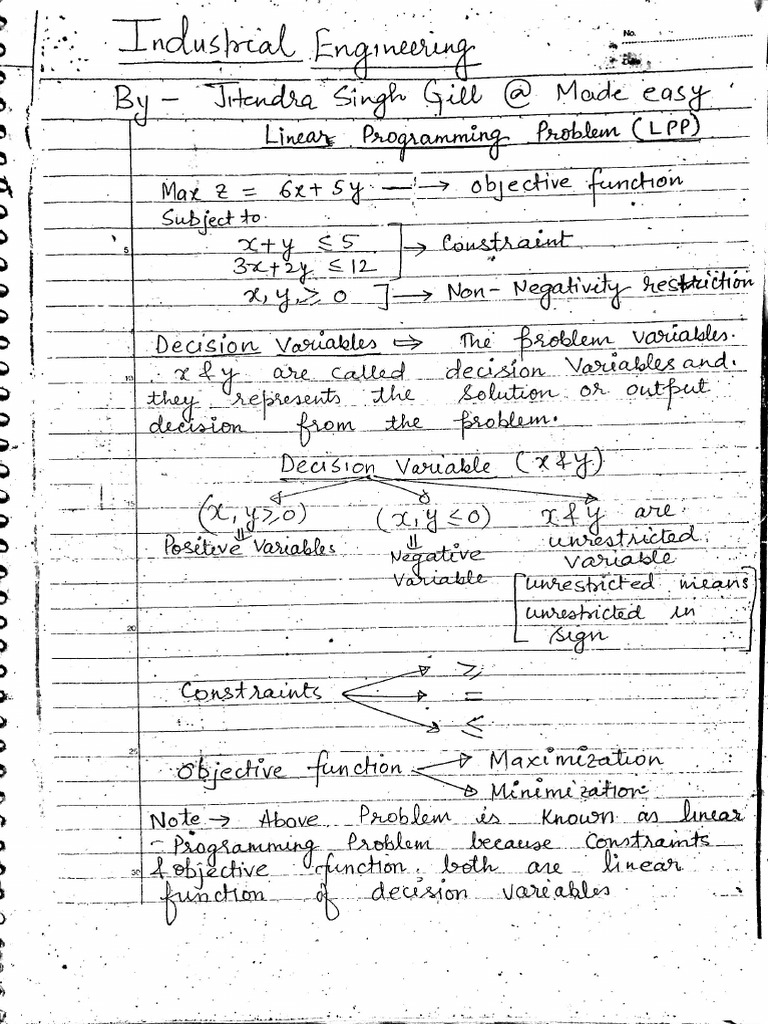 No.
Date
Industrial Engineering
By - Jitendra Singh Gill @ Made easy
Linear Programming Problem (LPP)
Max z = 6x + 5y —→ objective function
Subject to
x+y ≤ 5
3x+2y ≤ 12 ] → Constraint
x, y, ≥ 0 ] → Non-Negativity restriction
5
Decision Variables ⇨ The problem variables.
x & y are called decision Variables and
10
they represents the solution or output
decision from the problem.
Decision Variable (x & y)
15
(x, y ≥ 0) (x, y ≤ 0) x & y are
Positive Variables Negative Variable unrestricted variable
[unrestricted means
unrestricted in
20
sign]
≥
Constraints =
≤
25
Objective function → Maximization
→ Minimization
Note → Above Problem is Known as linear
- Programming Problem because Constraints
30 & objective function both are linear
function of decision variables